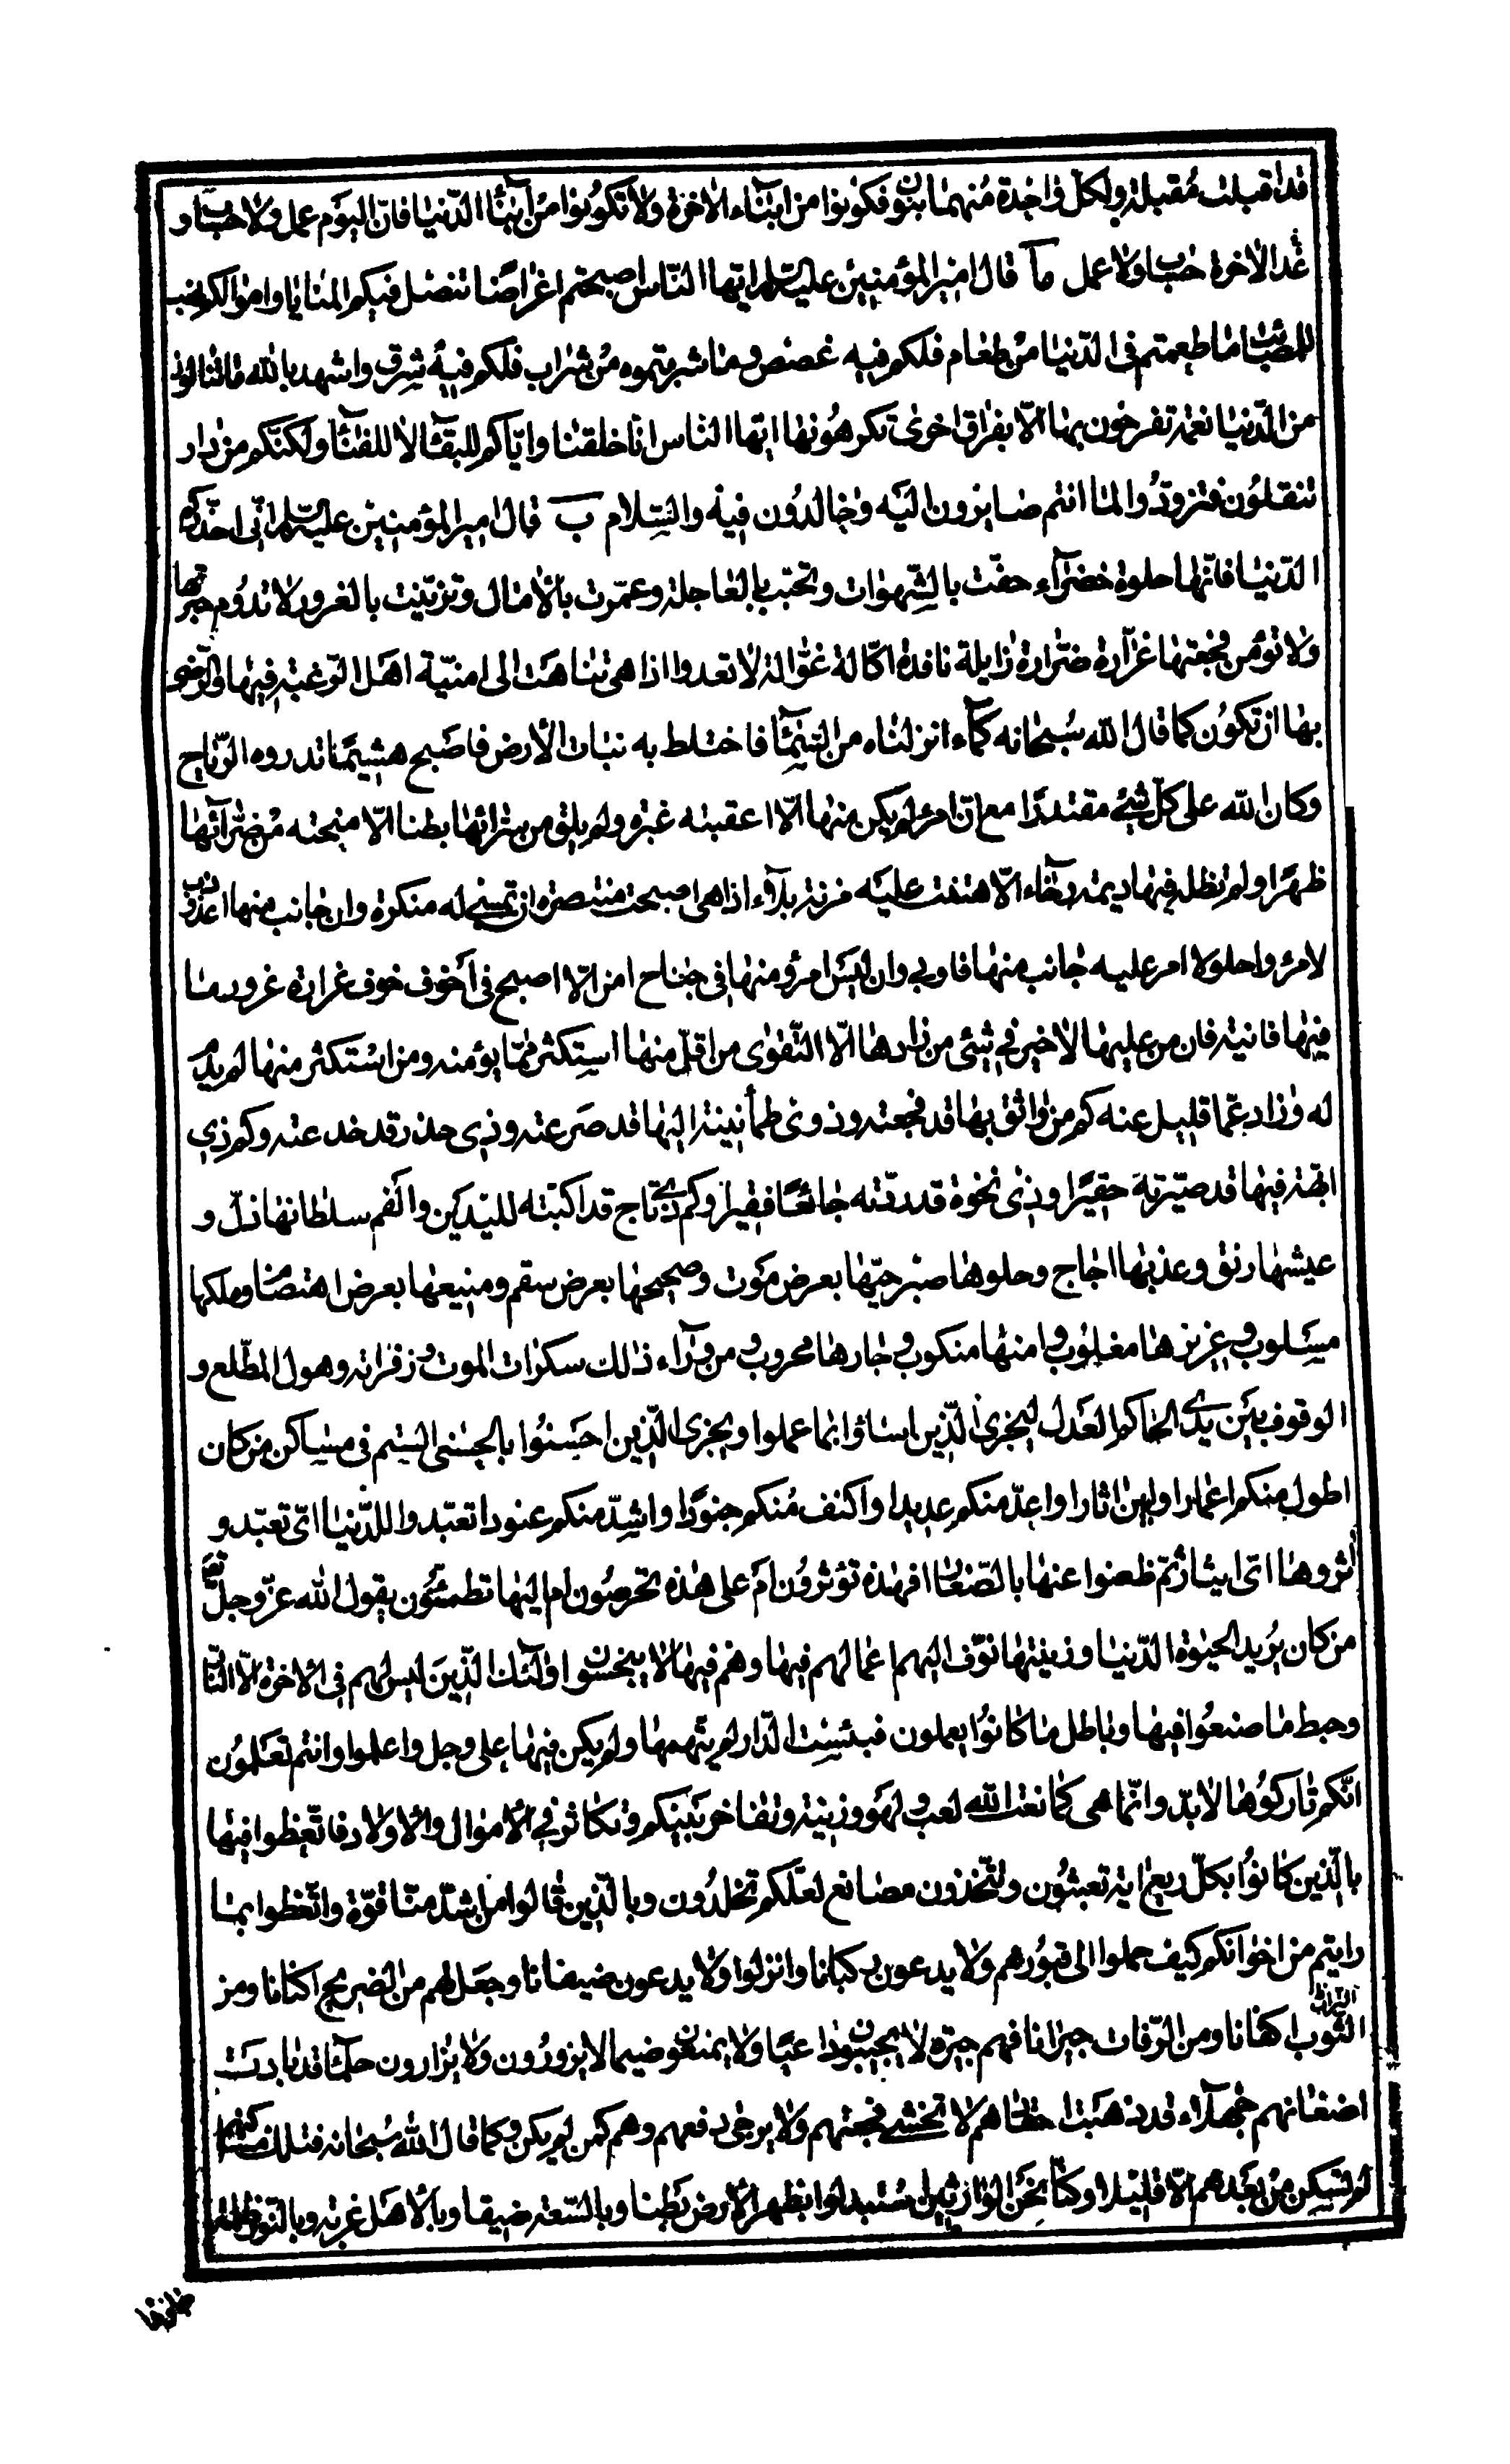 قد اقبلت مقبلة ولكل واحدة منهما بنون فكونوا من ابناء الاخرة ولا تكونوا من ابناء الدنيا فان اليوم عمل ولا حساب و
غدا الاخرة حساب ولا عمل قال امير المؤمنين عليه السلم ايها الناس اصبحتم اغراضا تنضل فيكم المنايا واموالكم نهب
للمصائب ما طعمتم في الدنيا من طعام فلكم فيه غصص وما شربتموه من شراب فلكم فيه شرق واشهد بالله ما تنالون
من الدنيا نعمة تفرحون بها الا بفراق اخرى تكرهونها ايها الناس انا خلقنا واياكم للبقاء لا للفناء ولكنكم من دار
تنقلون فتزودوا لما انتم صايرون اليه وخالدون فيه والسلام ب قال امير المؤمنين عليه السلم اني احذركم
الدنيا فانها حلوة خضراء حفت بالشهوات وتحببت بالعاجلة وعمرت بالامال وتزينت بالغرور لا تدوم حبرتها
ولا تؤمن فجعتها غرارة ضرارة زايلة نافدة اكالة غوالة لا تعدوا اذا هي تناهت الى امنية اهل الرغبة فيها والرضى
بها ان تكون كما قال الله سبحانه كماء انزلناه من السماء فاختلط به نبات الارض فاصبح هشيما تذروه الرياح
وكان الله على كل شيء مقتدرا مع ان امرءا لم يكن منها الا اعقبته عبرة ولم يلق من سرائها بطنا الا منحته من ضرائها
ظهرا ولم تظله فيها ديمة رخاء الا هتفت عليه مزنة بلاء اذا هي اصبحت منتصرة ان تمسي له منكرة وان جانب منها اعذوذب
لامرء واحلولا امر عليه جانب منها فاوبى وان لبس امرؤ منها في جناح امن الا اصبح في اخوف خوف غرارة غرور ما
فيها فانية فان من عليها لا خير في شيئ من زادها الا التقوى من اقل منها استكثر مما يؤمنه ومن استكثر منها لم يدم
له وزاد عما قليل عنه كم من واثق بها قد فجعته وذوى طمأنينة اليها قد صرعته وذي حذر قد خدعته وكم ذي
ابهة فيها قد صيرته حقيرا وذي نخوة قد ردته جائعا فقيرا وكم ذي تاج قد اكبته لليدين والفم سلطانها ذل و
عيشها رنق وعذبها اجاج وحلوها صبر حيها بعرض موت وصحيحها بعرض سقم ومنيعها بعرض اهتضام وملكها
مسلوب وعزيزها مغلوب وامنها منكوب وجارها محروب ومن وراء ذلك سكرات الموت وزفراته وهول المطلع و
الوقوف بين يدي الحاكم العدل ليجزى الذين اساؤا بما عملوا ويجزى الذين احسنوا بالحسنى الستم في مساكن من كان
اطول منكم اعمارا وابين اثارا واعد منكم عديدا واكنف منكم جنودا واشد منكم عنودا تعبدوا للدنيا اي تعبد و
اثروها اي ايثار ثم ظعنوا عنها بالصغار افهذه تؤثرون ام على هذه تحرصون ام اليها تطمئنون يقول الله عز وجل
من كان يريد الحيوة الدنيا وزينتها نوف اليهم اعمالهم فيها وهم فيها لا يبخسون اولئك الذين ليس لهم في الاخرة الا النار
وحبط ما صنعوا فيها وباطل ما كانوا يعملون فبئست الدار لم يتهمها ولم يكن فيها على وجل واعلموا وانتم تعلمون
انكم تاركوها لا بد وانما هي كما نعت الله لعب ولهو وزينة وتفاخر بينكم وتكاثر في الاموال والاولاد فاتعظوا فيها
بالذين كانوا بكل ريع اية تعبثون وتتخذون مصانع لعلكم تخلدون وبالذين قالوا من اشد منا قوة واتعظوا بما
رايتم من اخوانكم كيف حملوا الى قبورهم ولا يدعون ركبانا وانزلوا ولا يدعون ضيفانا وجعل لهم من الضريح اكنانا ومن
التراب
الثوب اكفانا ومن الرفات جيرانا فهم جيرة لا يجيبون داعيا ولا يمنعون ضيما لا يزورون ولا يزارون حلماء قد بادت
اضغانهم جهلاء قد ذهبت احقادهم لا تخشى فجعتهم ولا يرجى دفعهم وهم كمن لم يكن وكما قال الله سبحانه فتلك مساكنهم
لم تسكن من بعدهم الا قليلا وكنا نحن الوارثين استبدلوا بظهر الارض بطنا وبالسعة ضيقا وبالاهل غربة وبالنور ظلمة